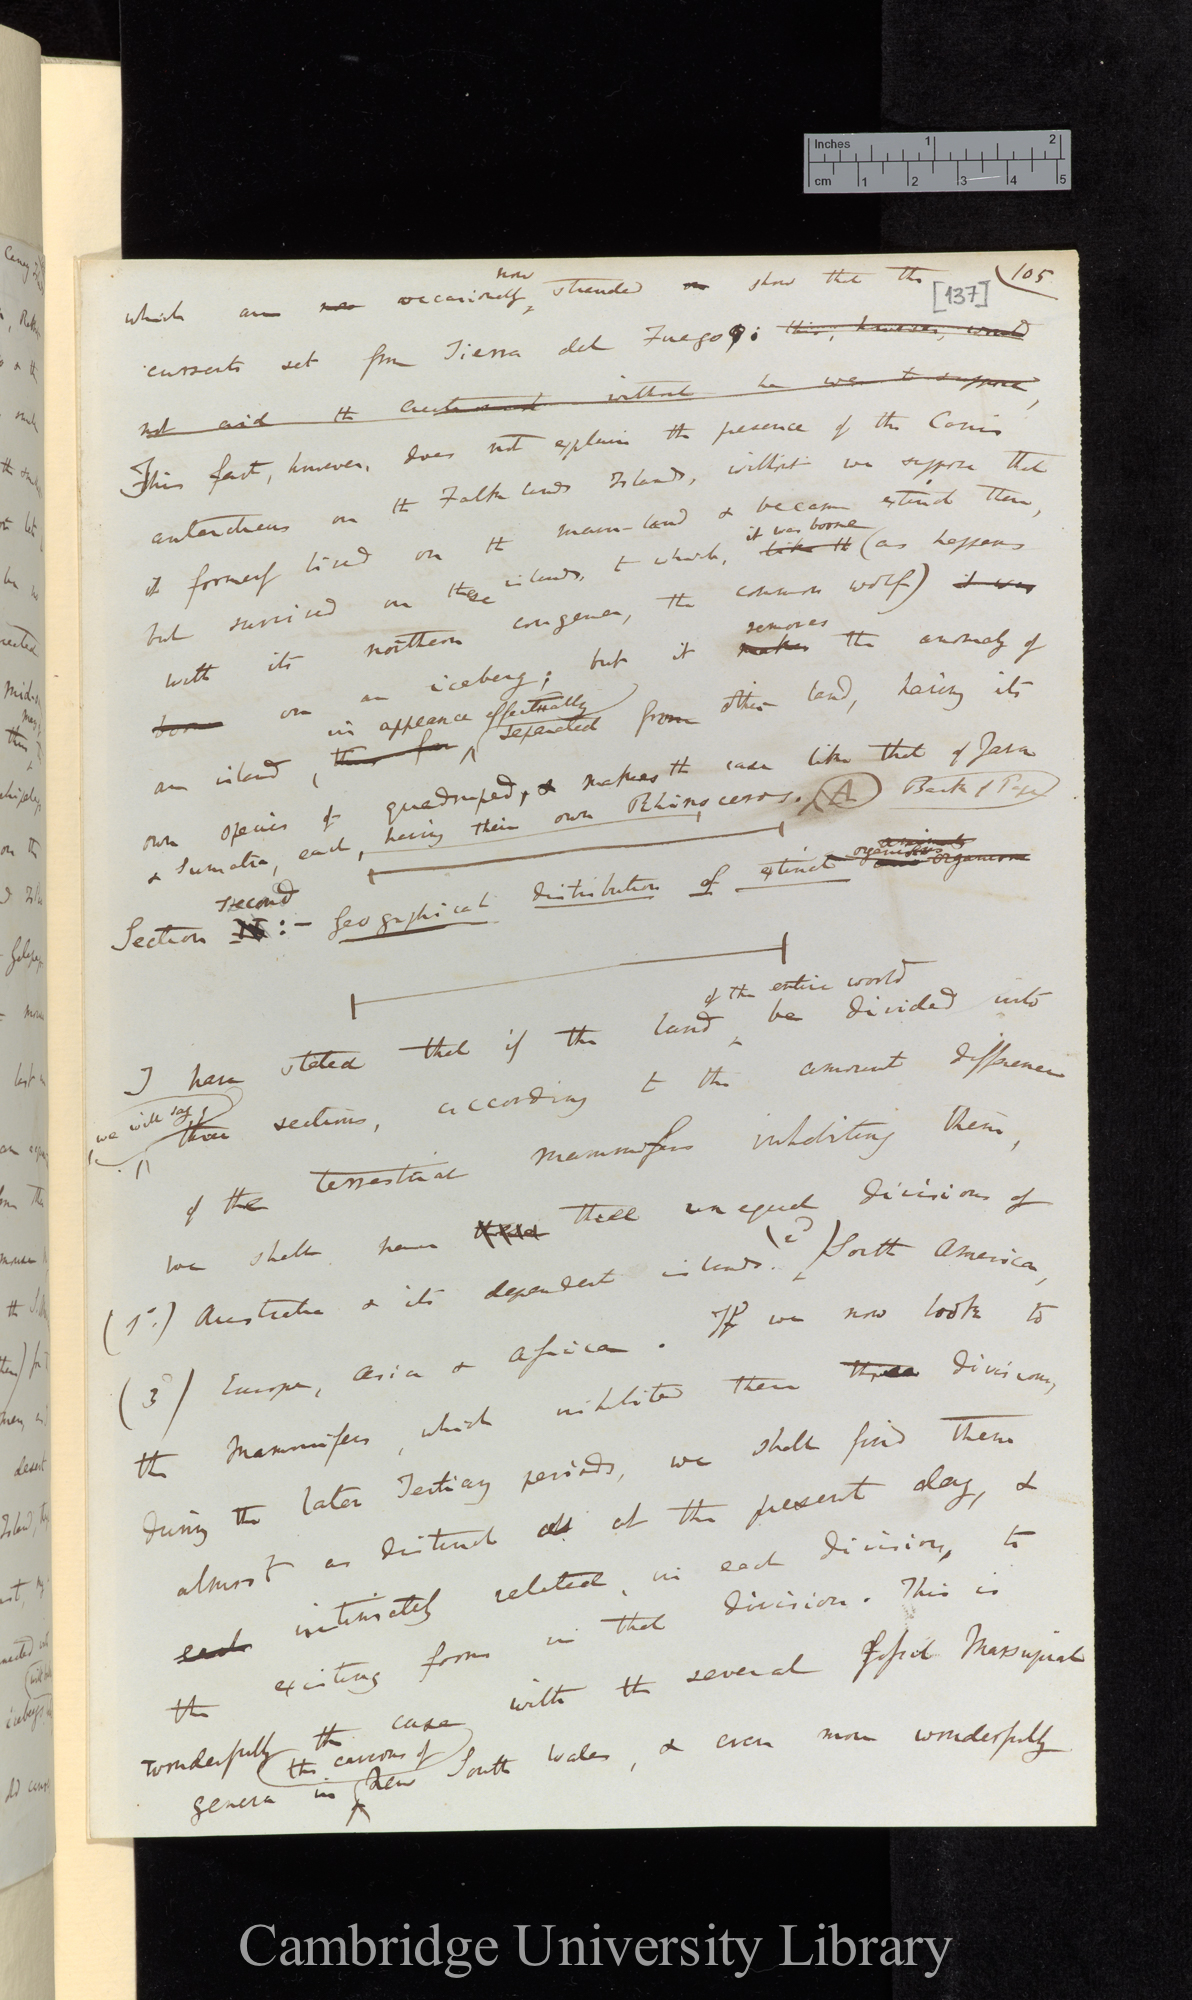 105
[137]
now
which are now occasionally stranded on show that the
currents set from Tierra del Fuego; this, however, would
not aid the without he were to suppose,
This fact, however, does not explain the presence of the Canis
antarcticus on the Falklands Islands, without we suppose that
it formerly lived on the main-land & became extinct there,
it was borne
but survived on these islands, to which, like th (as happens
with its northern congener, the common wolf) it was
removes
borne on an iceberg; but it makes the anomaly of
in appearance effectually
an island, thus far separated from other land, having its
own species of quadruped, & makes the case like that of Java
& Sumatra, each, having their own Rhinoceros. (A) Back of Page
second
organisms animals
Section IV :- Geographical distribution of extinct organisms
of the entire world
I have stated that if the land be divided into
we will say,
three sections, according to the amount difference
of the terrestrial mammifers inhabiting them,
we shall have three unequal divisions of
(1°.) Australia & its dependent islands. (2°) South America,
(3°) Europe, Asia & Africa. If we now look to
the mammifers, which inhabited these three divisions,
during the later Tertiary periods, we shall find them
almost as distinct as at the present day, &
each intimately related, in each division, to
the existing forms in that division. This is
wonderfully the case with the several fossil Marsupial
the caverns of
genera in New South Wales, & even more wonderfully
Inches 1 2
cm 1 2 3 4 5
Cambridge University Library